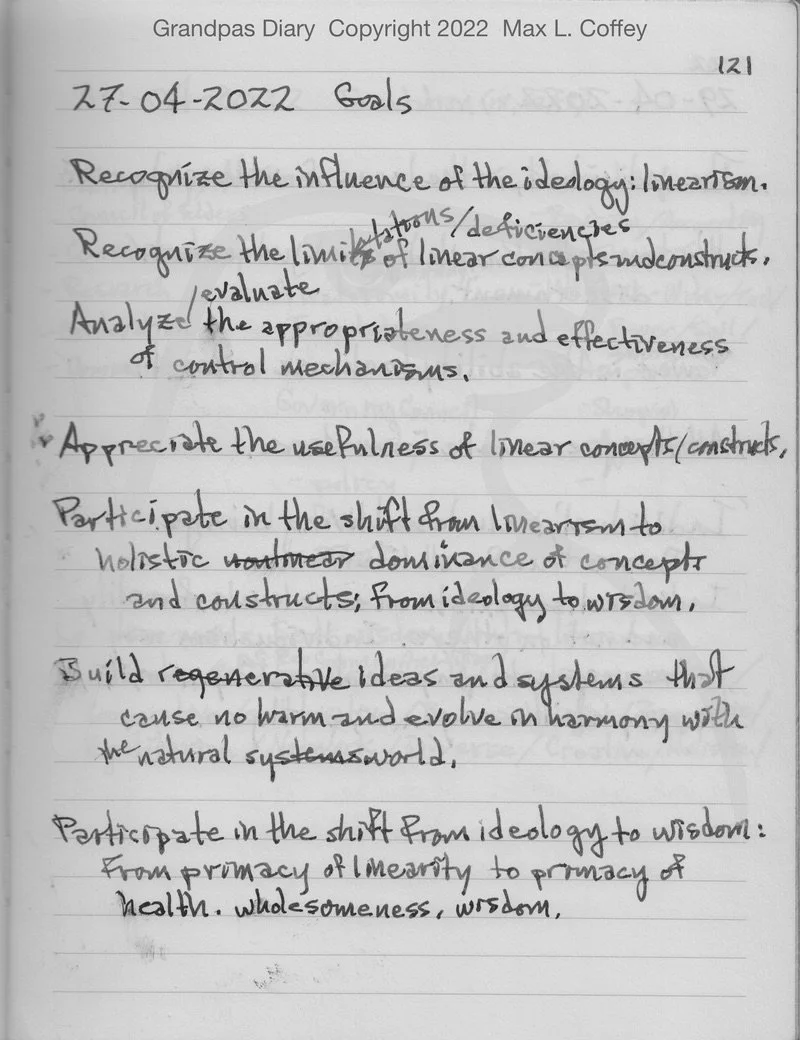 Grandpas Diary Copyright 2022 Max L. Coffey
121
27-04-2022 Goals
Recognize the influence of the ideology: linearism.
tations/deficiencies
Recognize the limits of linear concepts and constructs.
/evaluate
Analyze the appropriateness and effectiveness
of control mechanisms.
Appreciate the usefulness of linear concepts/constructs.
Participate in the shift from linearism to
holistic nonlinear dominance of concepts
and constructs; from ideology to wisdom.
Build regenerative ideas and systems that
cause no harm and evolve in harmony with
the natural systems world.
Participate in the shift from ideology to wisdom:
From primacy of linearity to primacy of
health. wholesomeness, wisdom.